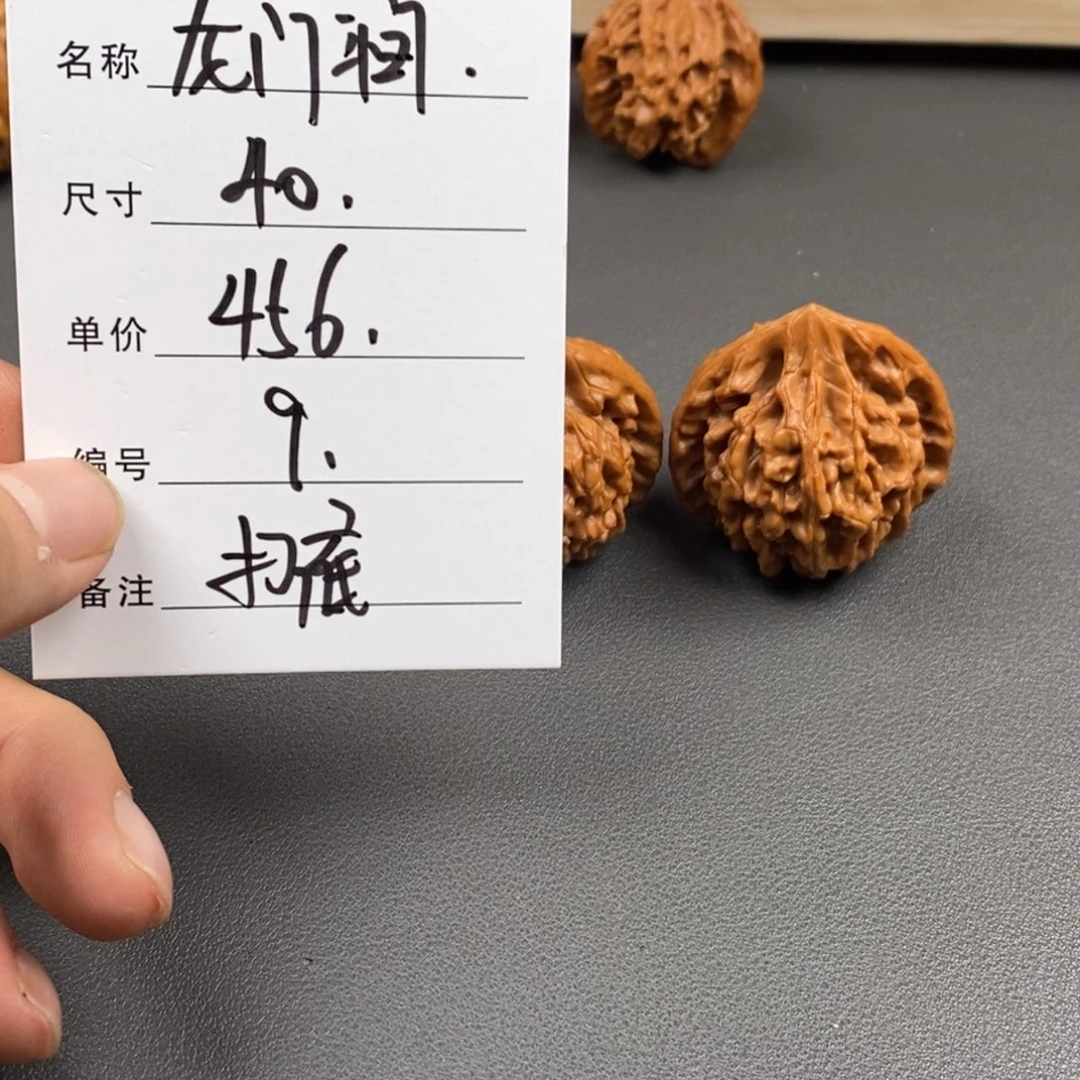 名称 龙门润.
尺寸 40.
单价 456.
编号 9.
备注 打底